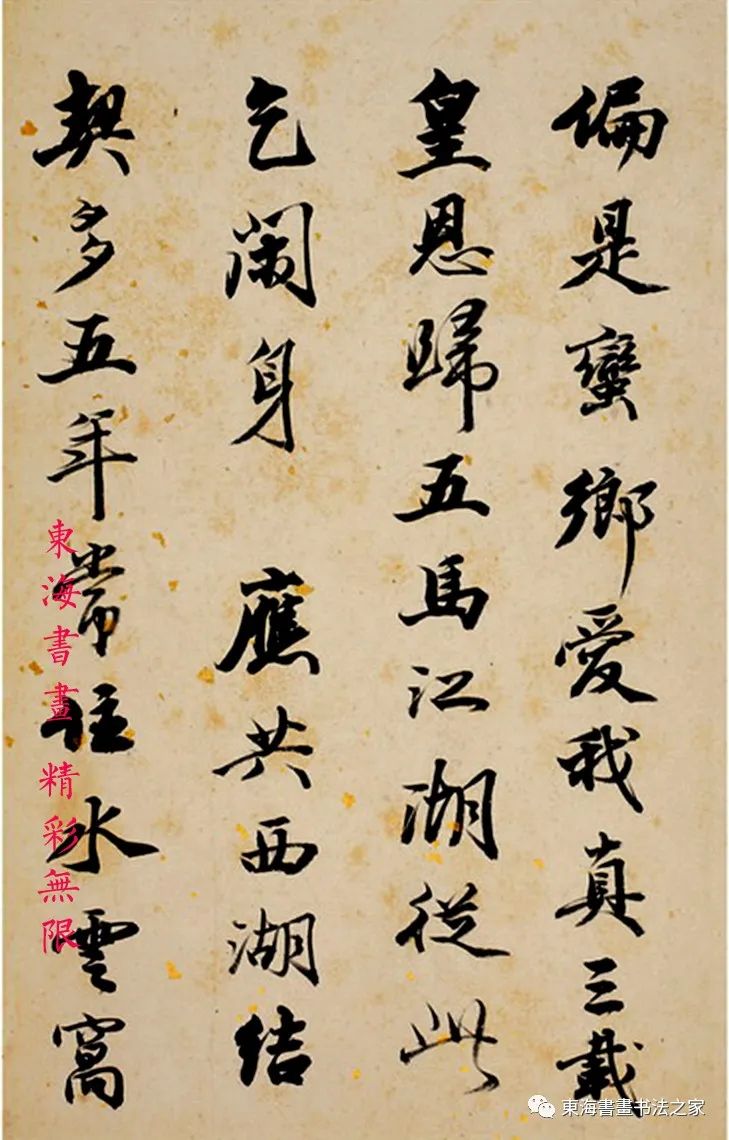 偏是蠻鄉愛我真三載
皇恩歸五馬江湖從此
乞閑身 應共西湖結
契多五年常住水雲窩
東海書畫精彩無限
東海書畫书法之家